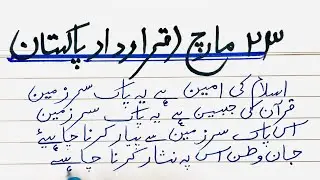 ۲۳ مارچ (قراردادِ پاکستان)
اسلام کی امین ہے یہ پاک سرزمین
قرآن کی جبین ہے یہ پاک سرزمین
اس پاک سرزمین سے پیار کرنا چاہیئے
جان وطن اس پہ نثار کرنا چاہیے